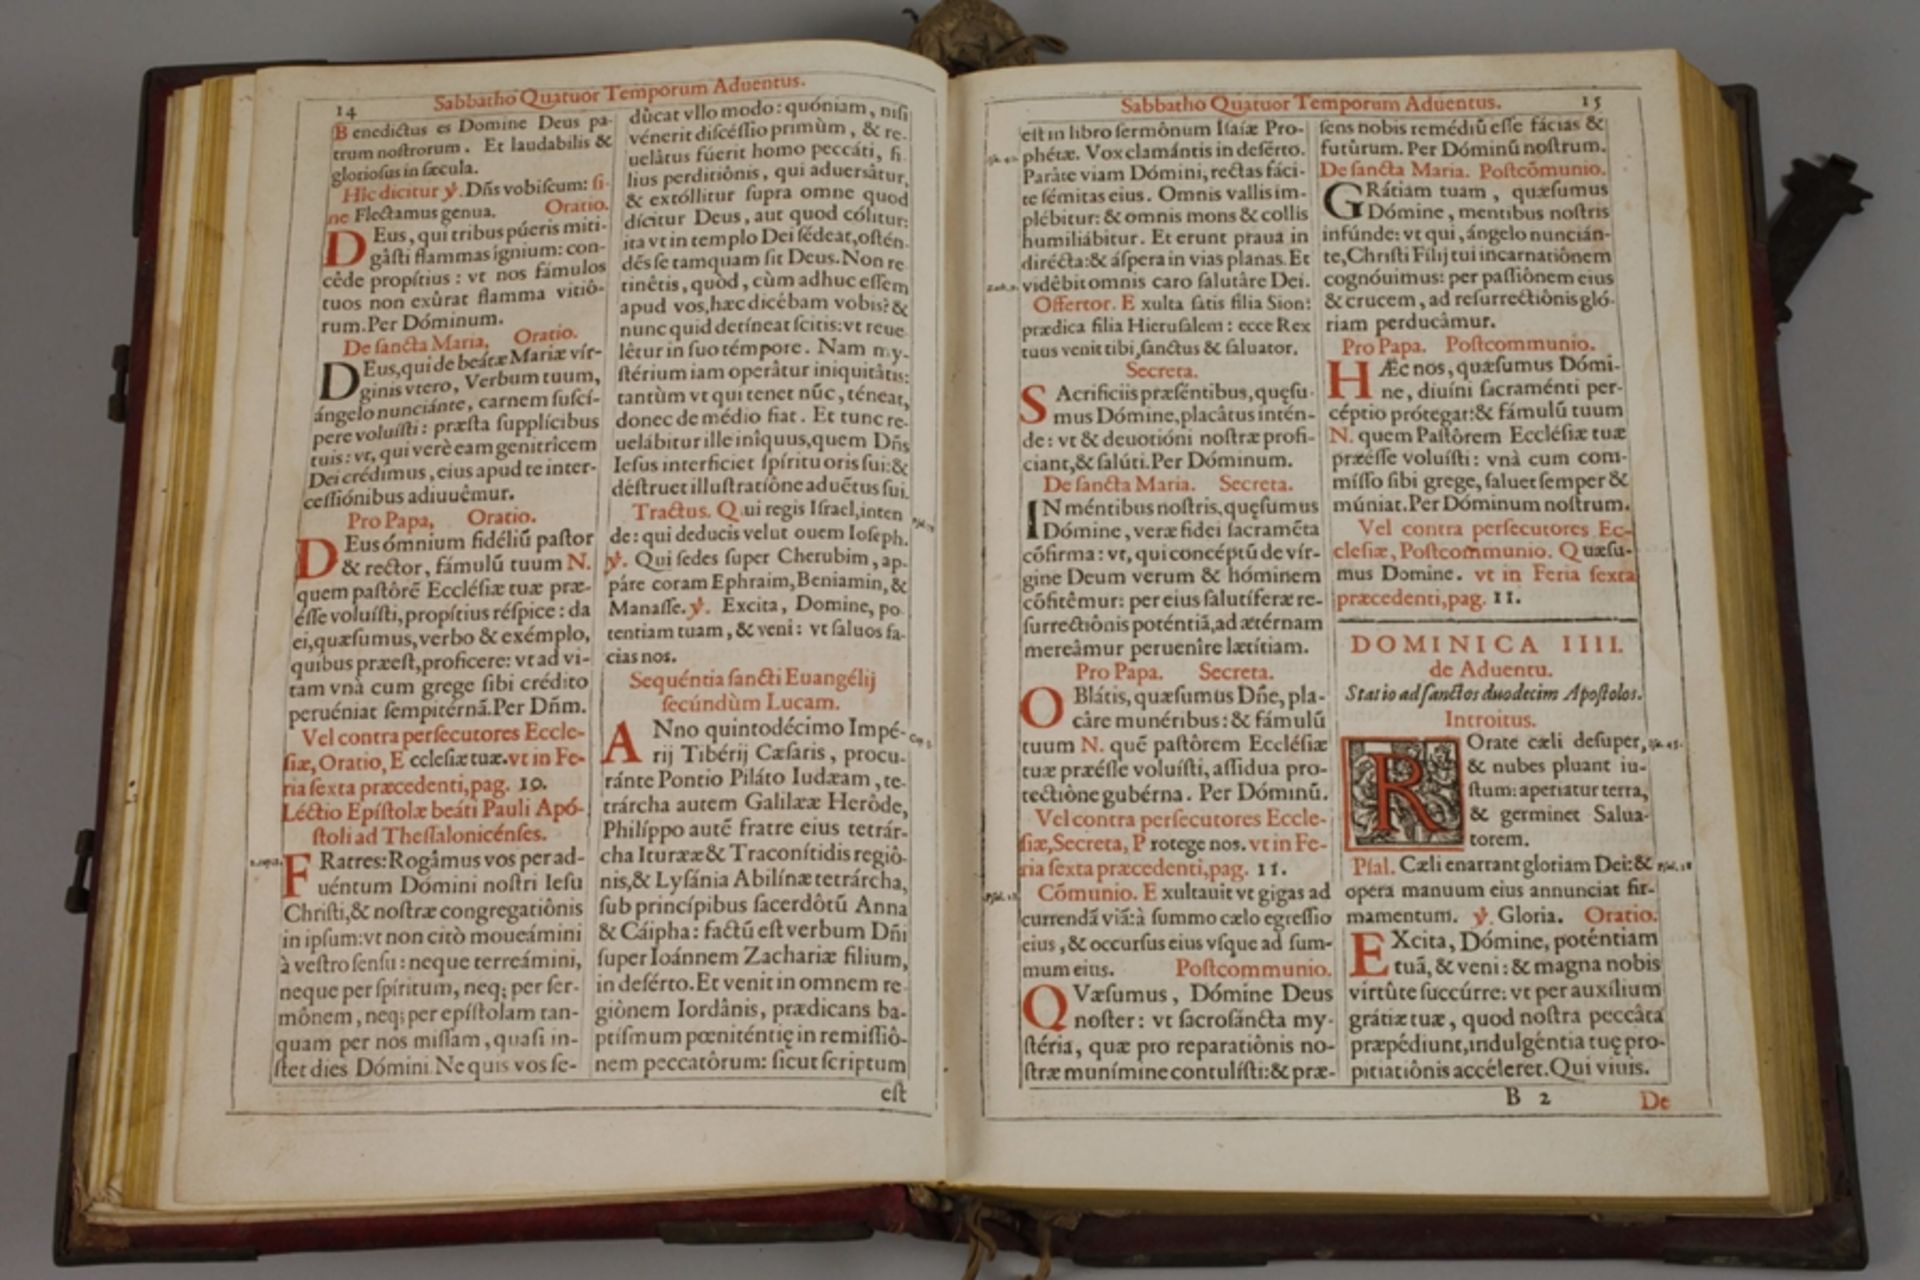 14
Sabbatho Quatuor Temporum Aduentus.
Benedictus es Domine Deus pa-
trum noſtrorum. Et laudabilis &
glorioſus in ſæcula.
Hic dicitur ℣. Dñs vobiſcum: ſi-
ne Flectamus genua. Oratio.
DEus, qui tribus púeris miti-
gâſti flammas ígnium: con-
cêde propítius: vt nos fámulos
tuos non exûrat flamma vitiô-
rum. Per Dóminum.
De ſancta Maria, Oratio.
DEus, qui de beátæ Mariæ vír-
ginis vtero, Verbum tuum,
ángelo nunciánte, carnem ſuſcí-
pere voluíſti: præſta ſupplícibus
tuis: vt, qui verè eam genitrîcem
Dei crédimus, eius apud te inter-
ceſſiónibus adiuuêmur.
Pro Papa, Oratio.
DEus ómnium fidéliũ paſtor
& rector, fámulũ tuum N.
quem paſtôrẽ Eccléſiæ tuæ præ-
éſſe voluíſti, propítius réſpice: da
ei, quæſumus, verbo & exémplo,
quibus præeſt, profícere: vt ad vi-
tam vnà cum grege ſibi crédito
peruéniat ſempitérnã. Per Dñm.
Vel contra perſecutores Eccle-
ſiæ, Oratio, Eccleſiæ tuæ. vt in Fe-
ria ſexta præcedenti, pag. 10.
Léctio Epíſtolæ beáti Pauli Apó-
ſtoli ad Theſſalonicénſes.
FRatres: Rogâmus vos per ad-
uéntum Dómini noſtri Ieſu
Chriſti, & noſtræ congregatiônis
in ipſum: vt non citò moueámini
à veſtro ſenſu: neque terreámini,
neque per ſpíritum, neq; per ſer-
mônem, neq; per epíſtolam tan-
quam per nos miſſam, quaſi in-
ſtet dies Dómini. Ne quis vos ſe-
dûcat vllo modo: quóniam, niſi
vénerit diſcéſſio primùm, & re-
uelâtus fúerit homo peccáti, fi-
lius perditiônis, qui aduersâtur,
& extóllitur ſupra omne quod
dícitur Deus, aut quod cólitur:
ita vt in templo Dei ſédeat, oſtén-
dẽs ſe tamquam ſit Deus. Non re
tinêtis, quòd, cùm adhuc eſſem
apud vos, hæc dicébam vobis? &
nunc quid detíneat ſcitis: vt reue-
lêtur in ſuo témpore. Nam my-
ſtérium iam operâtur iniquitâtis:
tantùm vt qui tenet nũc, téneat,
donec de médio fiat. Et tunc re-
uelábitur ille inîquus, quem Dñs
Ieſus interficiet ſpíritu oris ſui: &
déſtruet illuſtratiône aduẽtus ſui.
Tractus. Qui regis Iſrael, inten
de: qui deducis velut ouem Ioſeph.
℣. Qui ſedes ſuper Cherubim, ap-
páre coram Ephraim, Beniamin, &
Manaſſe. ℣. Excita, Domine, po
tentiam tuam, & veni: vt ſaluos fa-
cias nos.
Sequéntia ſancti Euangélij
ſecúndùm Lucam.
ANno quintodécimo Impé-
rij Tibérij Cæſaris, procu-
ránte Pontio Piláto Iudæam, te-
trárcha autem Galilææ Herôde,
Philíppo autẽ fratre eius tetrár-
cha Iturææ & Traconítidis regiô-
nis, & Lyſánia Abilínæ tetrárcha,
ſub princípibus ſacerdôtũ Anna
& Cáipha: factũ eſt verbum Dñi
ſuper Ioánnem Zachariæ filium,
in deſérto. Et venit in omnem re
giònem Iordânis, prædicans ba-
ptíſmum pœniténtię in remiſſiô-
nem peccatôrum: ſicut ſcriptum
eſt
Sabbatho Quatuor Temporum Aduentus.
15
eſt in libro ſermônum Iſaíæ Pro-
phétæ. Vox clamántis in deſérto.
Parâte viam Dómini, rectas fáci-
te ſémitas eius. Omnis vallis im-
plébitur: & omnis mons & collis
humiliábitur. Et erunt praua in
dirécta: & áſpera in vias planas. Et
vidêbit omnis caro ſalutâre Dei.
Offertor. Exulta ſatis filia Sion:
prædica filia Hieruſalem: ecce Rex
tuus venit tibi, ſanctus & ſaluator.
Secreta.
SAcrifíciis præſéntibus, quęſu-
mus Dómine, placâtus intén-
de: vt & deuotióni noſtræ profi-
ciant, & ſalúti. Per Dóminum.
De ſancta Maria. Secreta.
IN méntibus noſtris, quęſumus
Dómine, veræ fidei ſacramẽta
cõfirma: vt, qui concéptũ de vír-
gine Deum verum & hóminem
cõfitêmur: per eius ſalutíferæ re-
ſurrectiônis poténtiã, ad ætérnam
mereâmur peruenîre lætítiam.
Pro Papa. Secreta.
OBlátis, quæſumus Dñe, pla-
câre munéribus: & fámulũ
tuum N. quẽ paſtôrem Eccléſiæ
tuæ præéſſe voluíſti, aſſídua pro-
tectiône gubérna. Per Dóminũ.
Vel contra perſecutores Eccle-
ſiæ, Secreta, Protege nos. vt in Fe-
ria ſexta præcedenti, pag. 11.
Cõmunio. Exultauit vt gigas ad
currendã viã: à ſummo cælo egreſſio
eius, & occurſus eius vſque ad ſum-
mum eius. Postcommunio.
QVæſumus, Dómine Deus
noſter: vt ſacroſáncta my-
ſtéria, quæ pro reparatiônis no-
ſtræ munímine contulíſti: & præ-
ſens nobis remédiũ eſſe fácias &
futûrum. Per Dóminũ noſtrum.
De ſancta Maria. Poſtcõmunio.
GRátiam tuam, quæſumus
Dómine, mentibus noſtris
infúnde: vt qui, ángelo nuncián-
te, Chriſti Fílij tui incarnatiônem
cognóuimus: per paſſiônem eius
& crucem, ad reſurrectiônis gló-
riam perducâmur.
Pro Papa. Poſtcommunio.
HÆc nos, quæſumus Dómi-
ne, diuíni ſacraménti per-
céptio prótegat: & fámulũ tuum
N. quem Paſtôrem Eccléſiæ tuæ
præéſſe voluíſti: vnà cum com-
míſſo ſibi grege, ſaluet ſemper &
múniat. Per Dóminum noſtrum.
Vel contra perſecutores Ec-
cleſiæ, Poſtcommunio. Quæſu-
mus Domine. vt in Feria ſexta
præcedenti, pag. 11.
DOMINICA IIII.
de Aduentu.
Statio ad ſanctos duodecim Apoſtolos.
Introitus.
ROrate cæli deſuper,
& nubes pluant iu-
ſtum: aperiatur terra,
& germinet Salua-
torem.
Pſal. Cæli enarrant gloriam Dei: &
opera manuum eius annunciat fir-
mamentum. ℣. Gloria. Oratio.
EXcita, Dómine, poténtiam
tuã, & veni: & magna nobis
virtûte ſuccúrre: vt per auxílium
grátiæ tuæ, quod noſtra peccâta
præpédiunt, indulgéntia tuę pro-
pitiatiônis accéleret. Qui viuis.
B 2
De